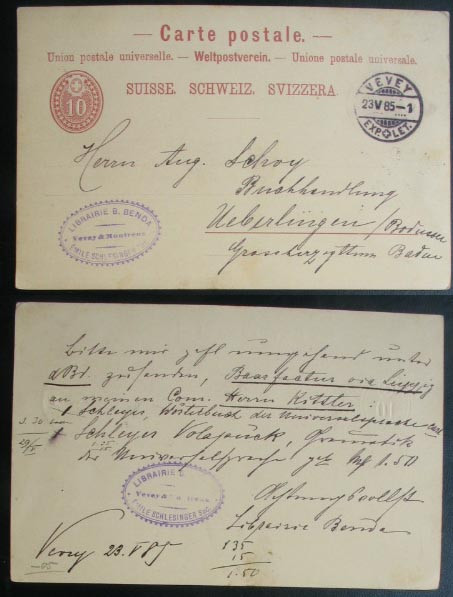 — Carte postale. —
Union postale universelle. — Weltpostverein. — Unione postale universale.
SUISSE. SCHWEIZ. SVIZZERA.
10
VEVEY
23 V 85 – 1
EXP. LET.
Herrn Aug. Schoy
Buchhandlung
Ueberlingen / Bodensee
Grossherzogthum Baden
LIBRAIRIE B. BENDA
Vevey & Montreux
EMILE SCHLESINGER
Bitte mir gefl umgehend unter
zusenden, Baarfactur via Leipzig
an meinen Com. Herrn
1 Schleyer, Wörterbuch der Universalsprache
1 Schleyer Volapück, Grammatik
der Universalsprache 1.50
Achtungsvollst
Librairie Benda
LIBRAIRIE
EMILE SCHLESINGER SUC
Vevey 23. V 85
135
15
1.50